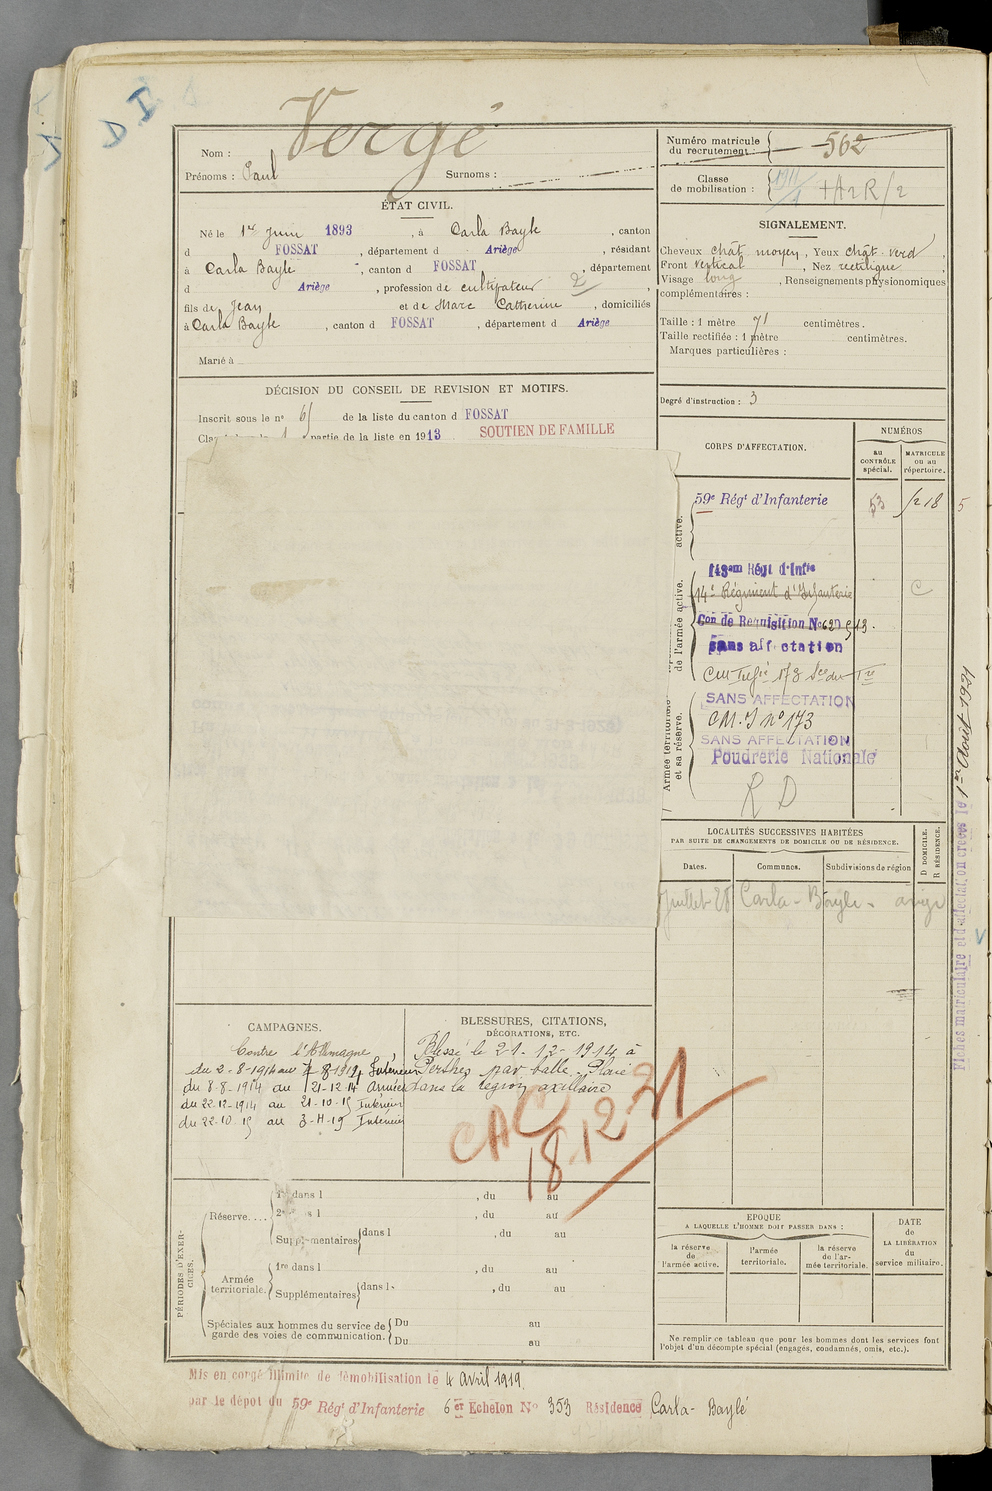 D I
Vergé
Nom :
Prénoms : Paul
Surnoms :
ÉTAT CIVIL.
Né le 1er Juin 1893, à Carla Bayle, canton
d FOSSAT, département d Ariège, résidant
à Carla Bayle, canton d FOSSAT, département
d Ariège, profession de cultivateur 2
fils de Jean et de Marc Catherine, domiciliés
à Carla Bayle, canton d FOSSAT, département d Ariège
Marié à
DÉCISION DU CONSEIL DE REVISION ET MOTIFS.
Inscrit sous le no de la liste du canton d FOSSAT
partie de la liste en 1913 SOUTIEN DE FAMILLE
Numéro matricule
du recrutement : 562
Classe
de mobilisation : 1911
SIGNALEMENT.
Cheveux chât moyen, Yeux chât verd,
Front vertical, Nez rectiligne,
Visage long, Renseignements physionomiques
complémentaires :
Taille : 1 mètre 71 centimètres.
Taille rectifiée : 1 mètre centimètres.
Marques particulières :
Degré d'instruction : 3
CORPS D'AFFECTATION.
NUMÉROS
au
CONTRÔLE
spécial.
MATRICULE
ou au
répertoire.
active.
59e Régt d'Infanterie 53 5
de l'armée active.
143em Régt d'Infie
14e Régiment d'Infanterie C
Con de Requisition No
sans affectation
Armée territoriale
et sa réserve.
SANS AFFECTATION
CM.I no 173
SANS AFFECTATION
Poudrerie Nationale
R D
LOCALITÉS SUCCESSIVES HABITÉES
PAR SUITE DE CHANGEMENTS DE DOMICILE OU DE RÉSIDENCE.
Dates.
Communes.
Subdivisions de région
D DOMICILE.
R RÉSIDENCE.
Juillet 28 Carla-Bayle
Fiches matriculaire et d'affectation creées le 1er Août 1924
CAMPAGNES.
Contre l'Allemagne,
du 2-8-1914 au 7-8-1914 Intérieur
du 8-8-1914 au 21-12-14 Armées
du 22.12-1914 au 21-10-15 Intérieur
du 22.10 15 au Intérieur
BLESSURES, CITATIONS,
DÉCORATIONS, ETC.
Blessé le 21-12-1914 à
Perthes par balle. Plaie
dans la région axillaire
CAC
18.12 21
PÉRIODES D'EXERCICES.
Réserve....
1re dans l , du au
2e dans l , du au
Supplémentaires dans l , du au
Armée
territoriale.
1re dans l , du au
Supplémentaires dans l , du au
Spéciales aux hommes du service de
garde des voies de communication.
Du au
Du au
EPOQUE
A LAQUELLE L'HOMME DOIT PASSER DANS :
la réserve
de
l'armée active.
l'armée
territoriale.
la réserve
de l'ar-
mée territoriale.
DATE
de
LA LIBÉRATION
du
service militaire.
Ne remplir ce tableau que pour les hommes dont les services font
l'objet d'un décompte spécial (engagés, condamnés, omis, etc.).
Mis en congé illimité de démobilisation le 4 Avril 1919.
par le dépot du 59e Régt d'Infanterie 6er Echelon No 353 Résidence Carla-Baylé